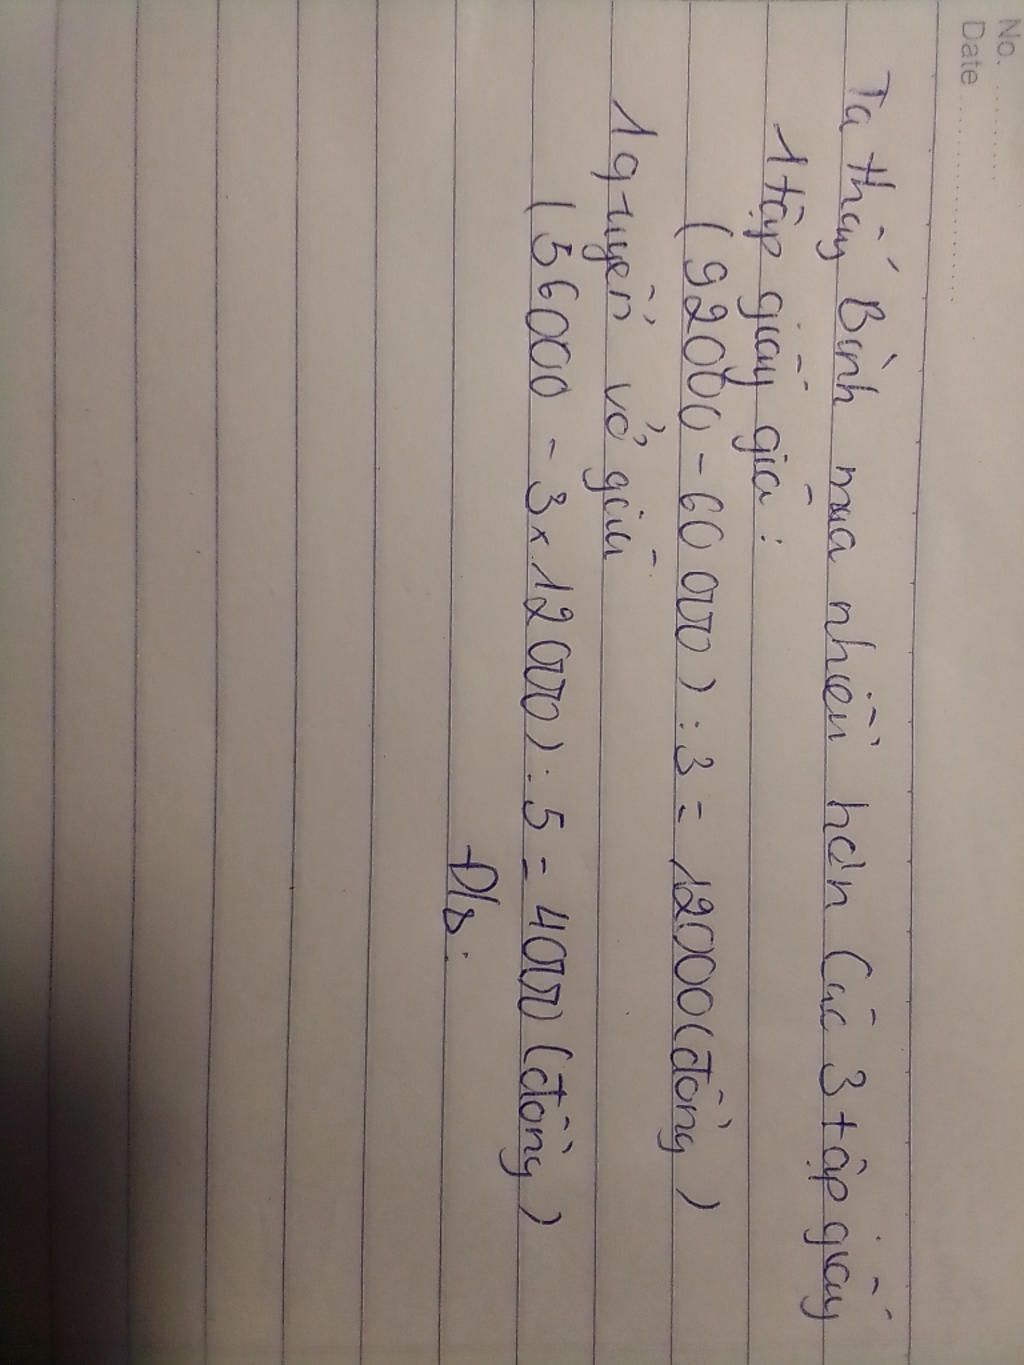 No.
Date
Ta thấy Bình mua nhiều hơn Cúc 3 tập giấy
1 tập giấy giá :
(92000 - 60 000) : 3 = 12000 (đồng)
1 quyển vở giá
(56000 - 3 x 12 000) : 5 = 4000 (đồng)
Đ/s: